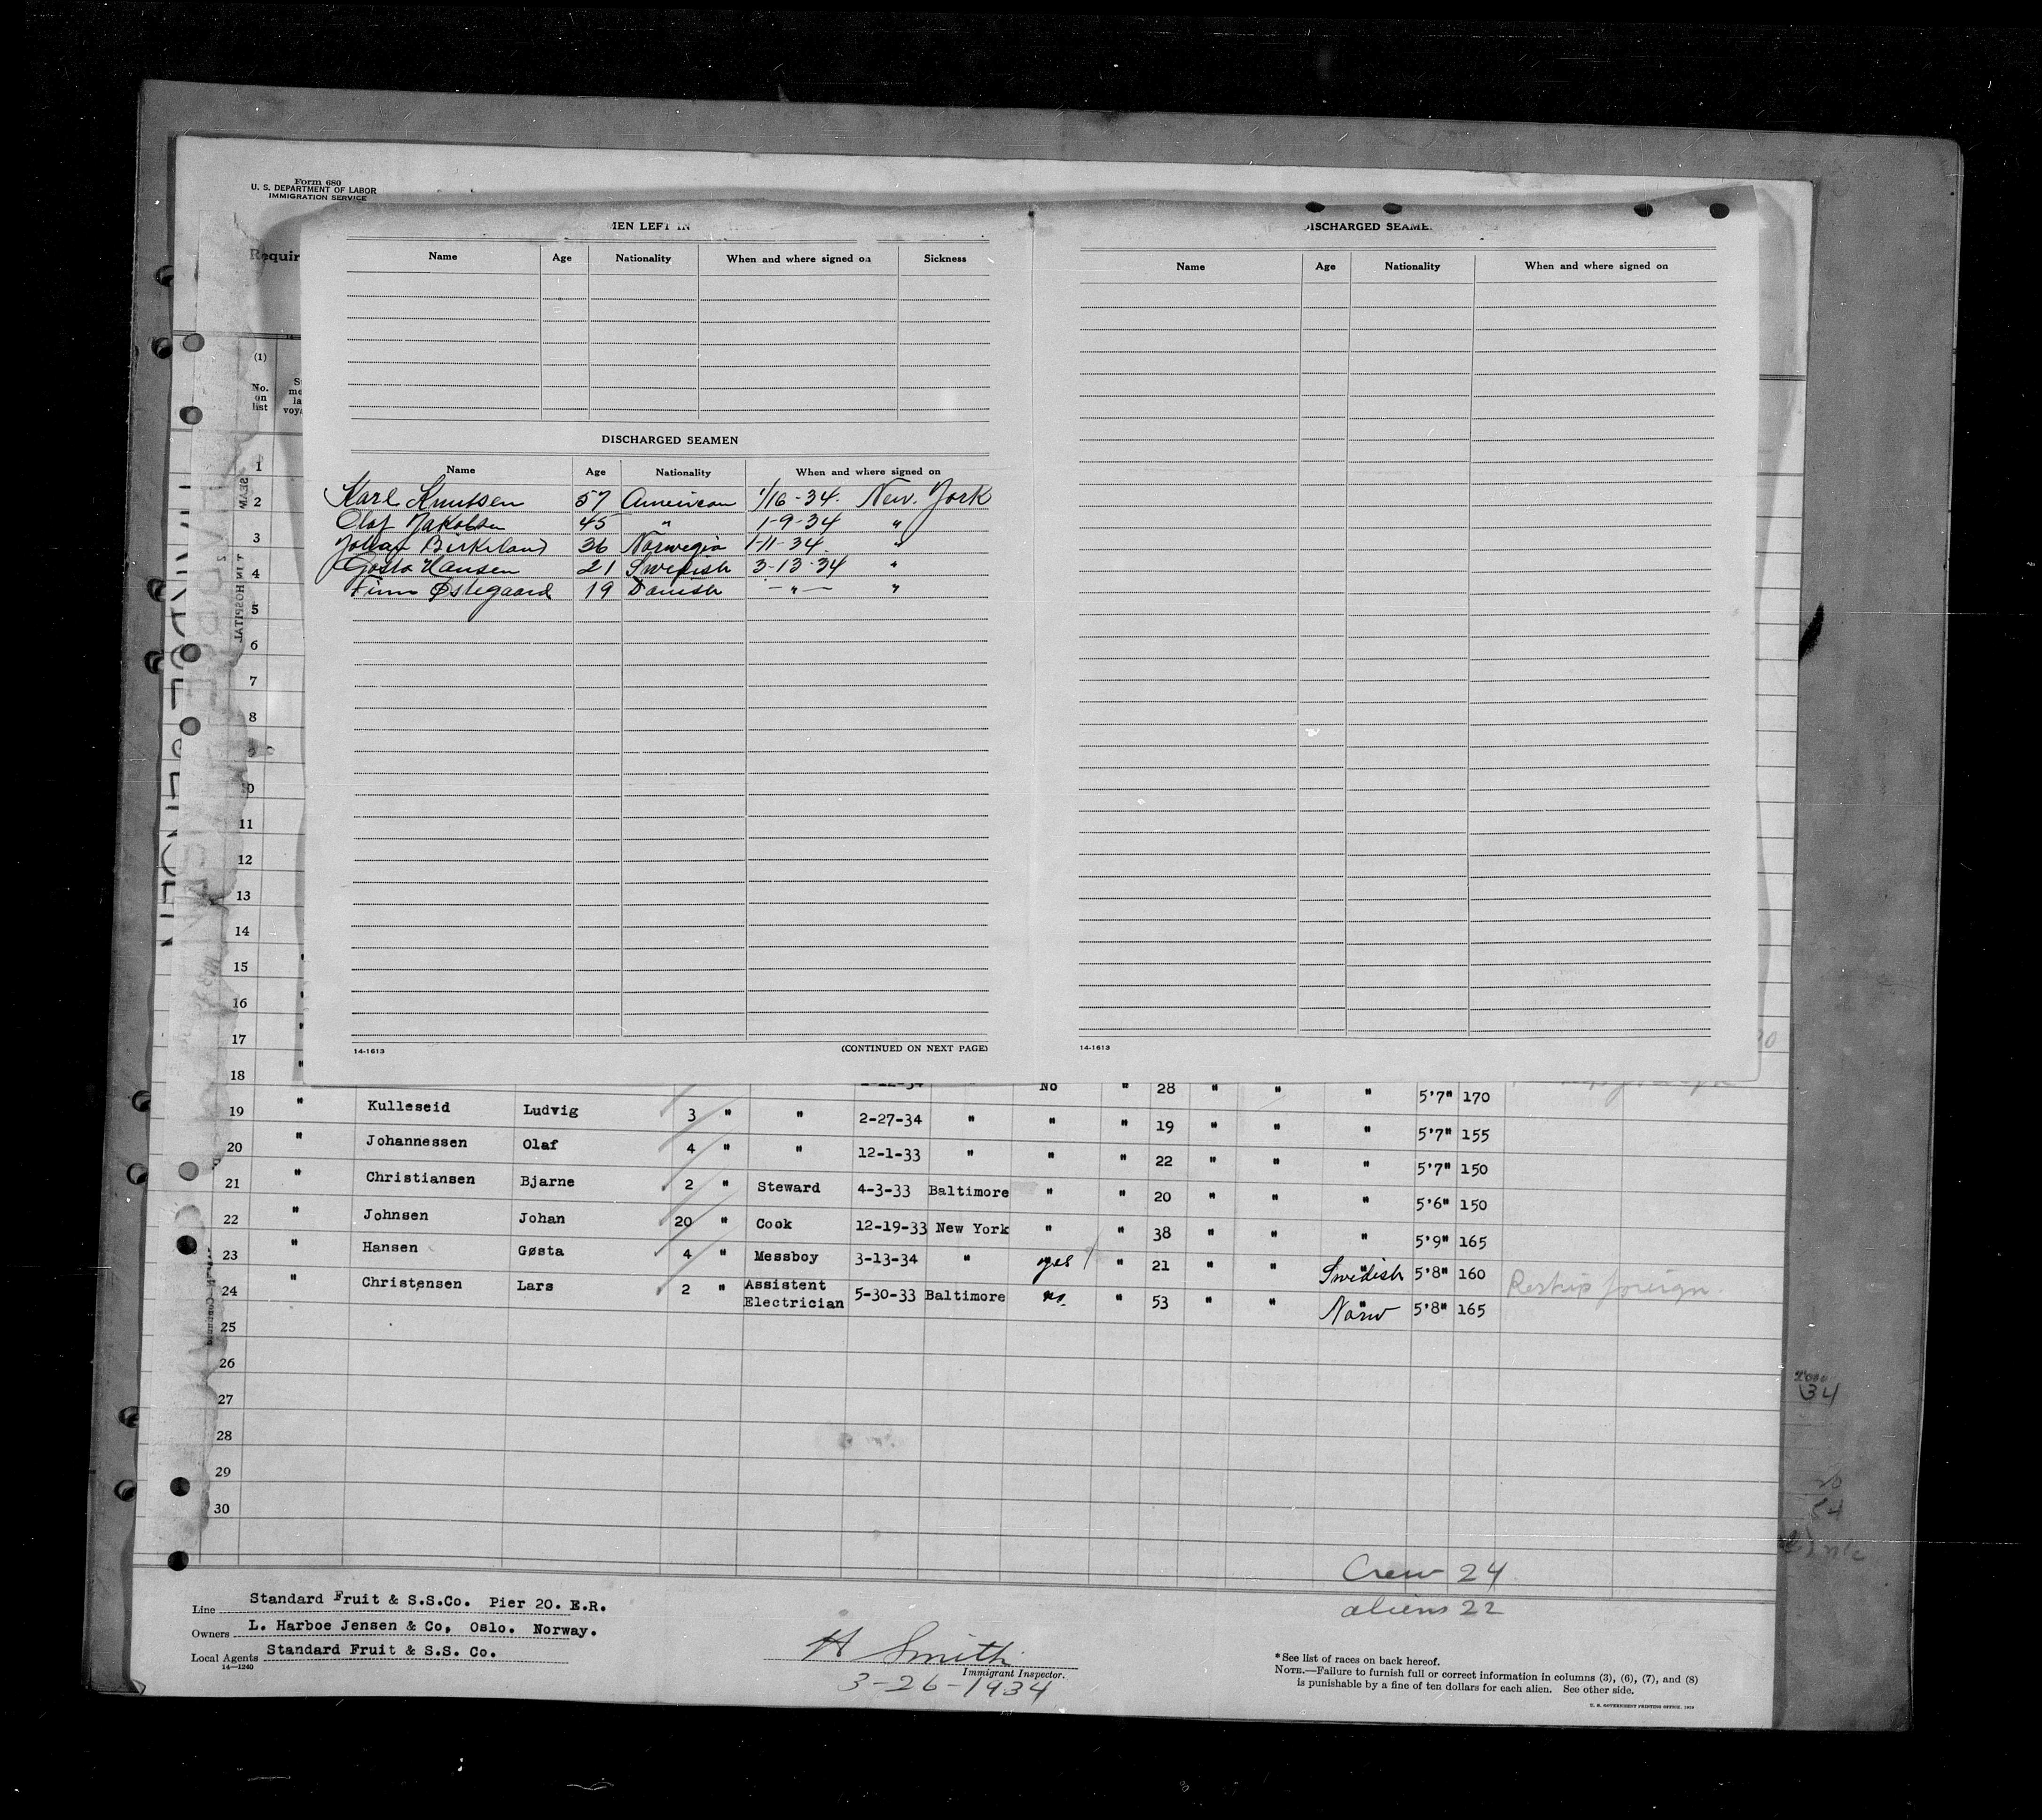 Form 680
U. S. DEPARTMENT OF LABOR
IMMIGRATION SERVICE
MEN LEFT IN
Name Age Nationality When and where signed on Sickness
DISCHARGED SEAMEN
Name Age Nationality When and where signed on
Karl Knutsen 57 American 1/16-34. New. York
Olaf Jakobsen 45 " 1-9-34 "
Johan Birkeland 36 Norwegia 1-11-34. "
Gøsta Hansen 21 Swedish 3-13-34 "
Finn Østegaard 19 Danish -"- "
14-1613 (CONTINUED ON NEXT PAGE)
DISCHARGED SEAME
Name Age Nationality When and where signed on
14-1613
Requir
(1)
No. on list
1
2
3
4
5
6
7
8
10
11
12
13
14
15
16
17
18 " No " 28 " " " 5'7" 170
19 " Kulleseid Ludvig 3 " " 2-27-34 " " " 19 " " " 5'7" 155
20 " Johannessen Olaf 4 " " 12-1-33 " " " 22 " " " 5'7" 150
21 " Christiansen Bjarne 2 " Steward 4-3-33 Baltimore " " 20 " " " 5'6" 150
22 " Johnsen Johan 20 " Cook 12-19-33 New York " " 38 " " " 5'9" 165
23 " Hansen Gøsta 4 " Messboy 3-13-34 " yes " 21 " " Swedish 5'8" 160 Reship foreign.
24 " Christensen Lars 2 " Assistent Electrician 5-30-33 Baltimore no. " 53 " " Norw 5'8" 165
25
26
27
28
29
30
34
Crew 24
aliens 22
Line Standard Fruit & S.S.Co. Pier 20. E.R.
Owners L. Harboe Jensen & Co, Oslo. Norway.
Local Agents Standard Fruit & S.S. Co.
14—1240
H Smith
Immigrant Inspector.
3-26-1934
*See list of races on back hereof.
NOTE.—Failure to furnish full or correct information in columns (3), (6), (7), and (8)
is punishable by a fine of ten dollars for each alien. See other side.
U. S. GOVERNMENT PRINTING OFFICE.